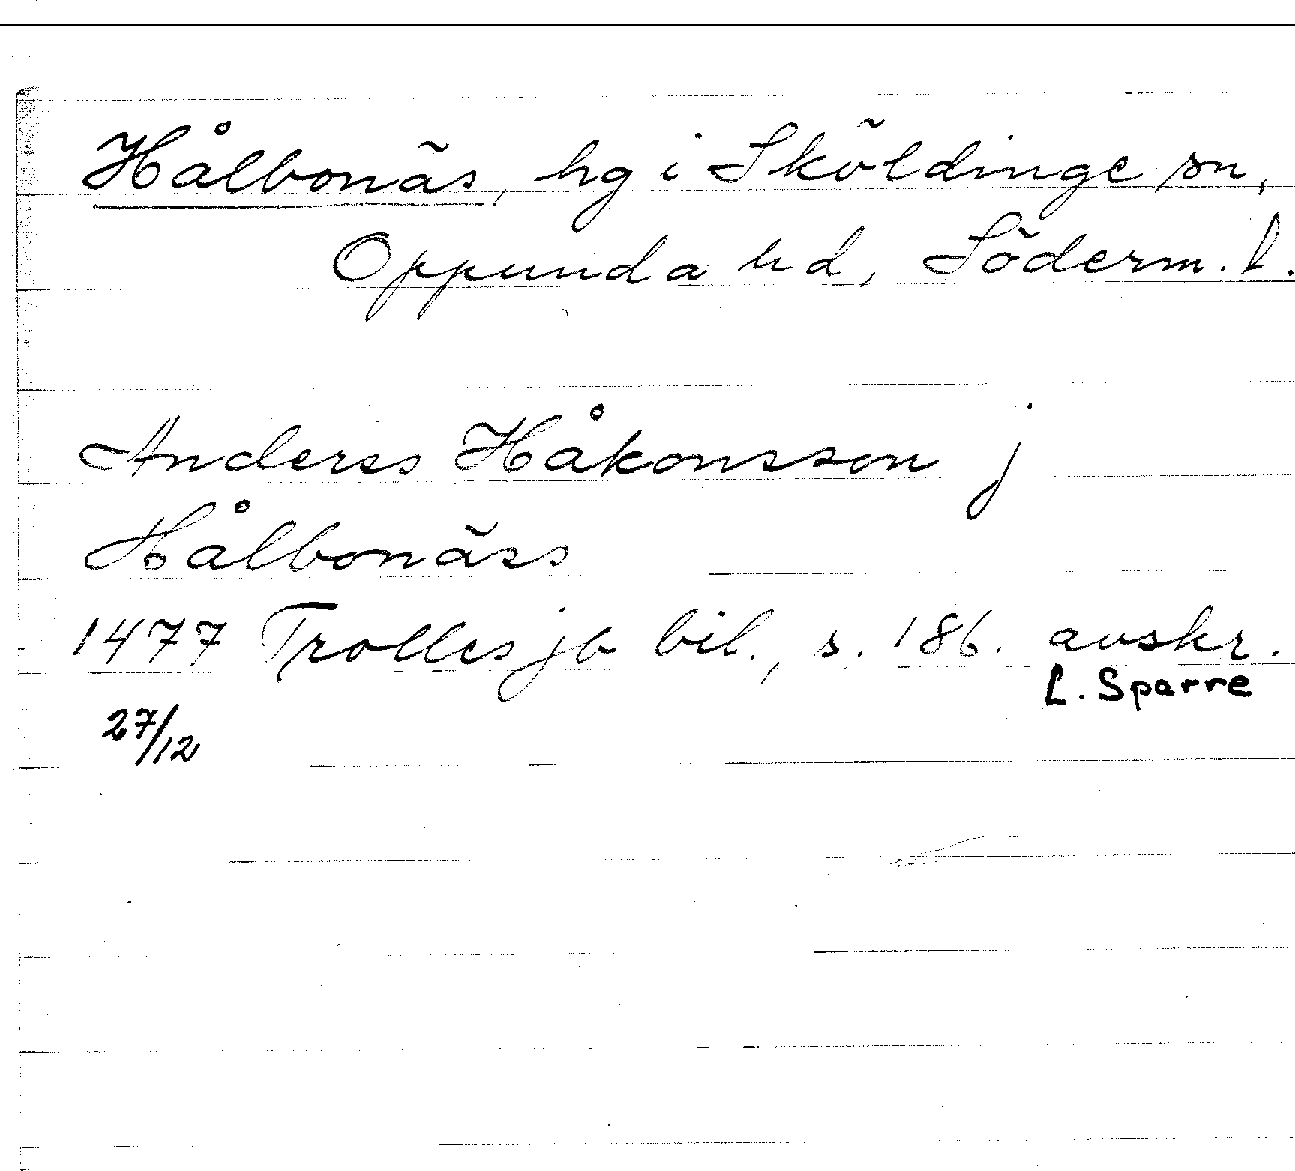 Hålbonäs, hg i Sköldinge sn,
Oppunda hd, Söderm. l.
Anderss Håkonsson j
Hålbonäss
1477 Trolles jb bil., s. 186. avskr.
L. Sparre
27/12